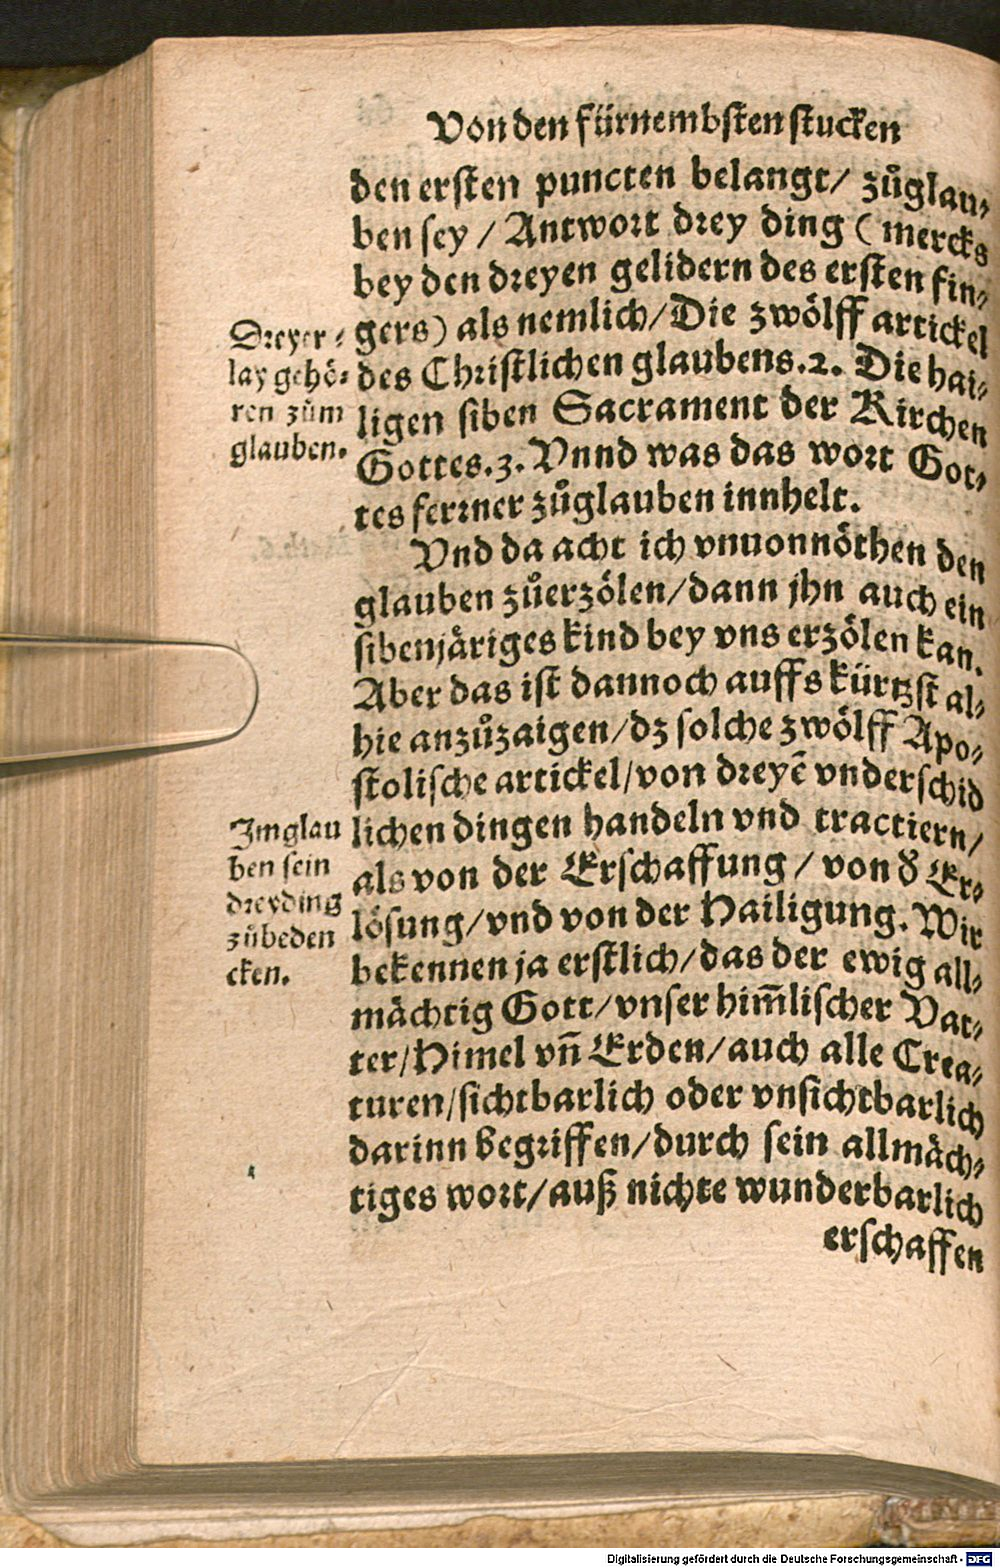 Von den fürnembsten stucken
den ersten puncten belangt/ zůglau-
ben sey / Antwort drey ding ( mercks
bey den dreyen gelidern des ersten fin-
gers) als nemlich/Die zwölff artickel
des Christlichen glaubens.2. Die hai-
ligen siben Sacrament der Kirchen
Gottes.3. Vnnd was das wort Got-
tes ferrner zůglauben innhelt.
Vnd da acht ich vnuonnöthen den
glauben zůerzölen/dann jhn auch ein
sibenjäriges kind bey vns erzölen kan.
Aber das ist dannoch auffs kürtzst al-
hie anzůzaigen/dz solche zwölff Apo-
stolische artickel/von dreyē vnderschid
lichen dingen handeln vnd tractiern/
als von der Erschaffung / von d̕ Er-
lösung/vnd von der Hailigung. Wir
bekennen ja erstlich/das der ewig all-
mächtig Gott/vnser him̄lischer Vat-
ter/Himel vn̄ Erden/auch alle Crea-
turen/sichtbarlich oder vnsichtbarlich
darinn begriffen/durch sein allmäch-
tiges wort/auß nichte wunderbarlich
erschaffen
Dreyer-
lay gehö-
ren zům
glauben.
Im glau
ben sein
drey ding
zůbeden
cken.
Digitalisierung gefördert durch die Deutsche Forschungsgemeinschaft - DFG